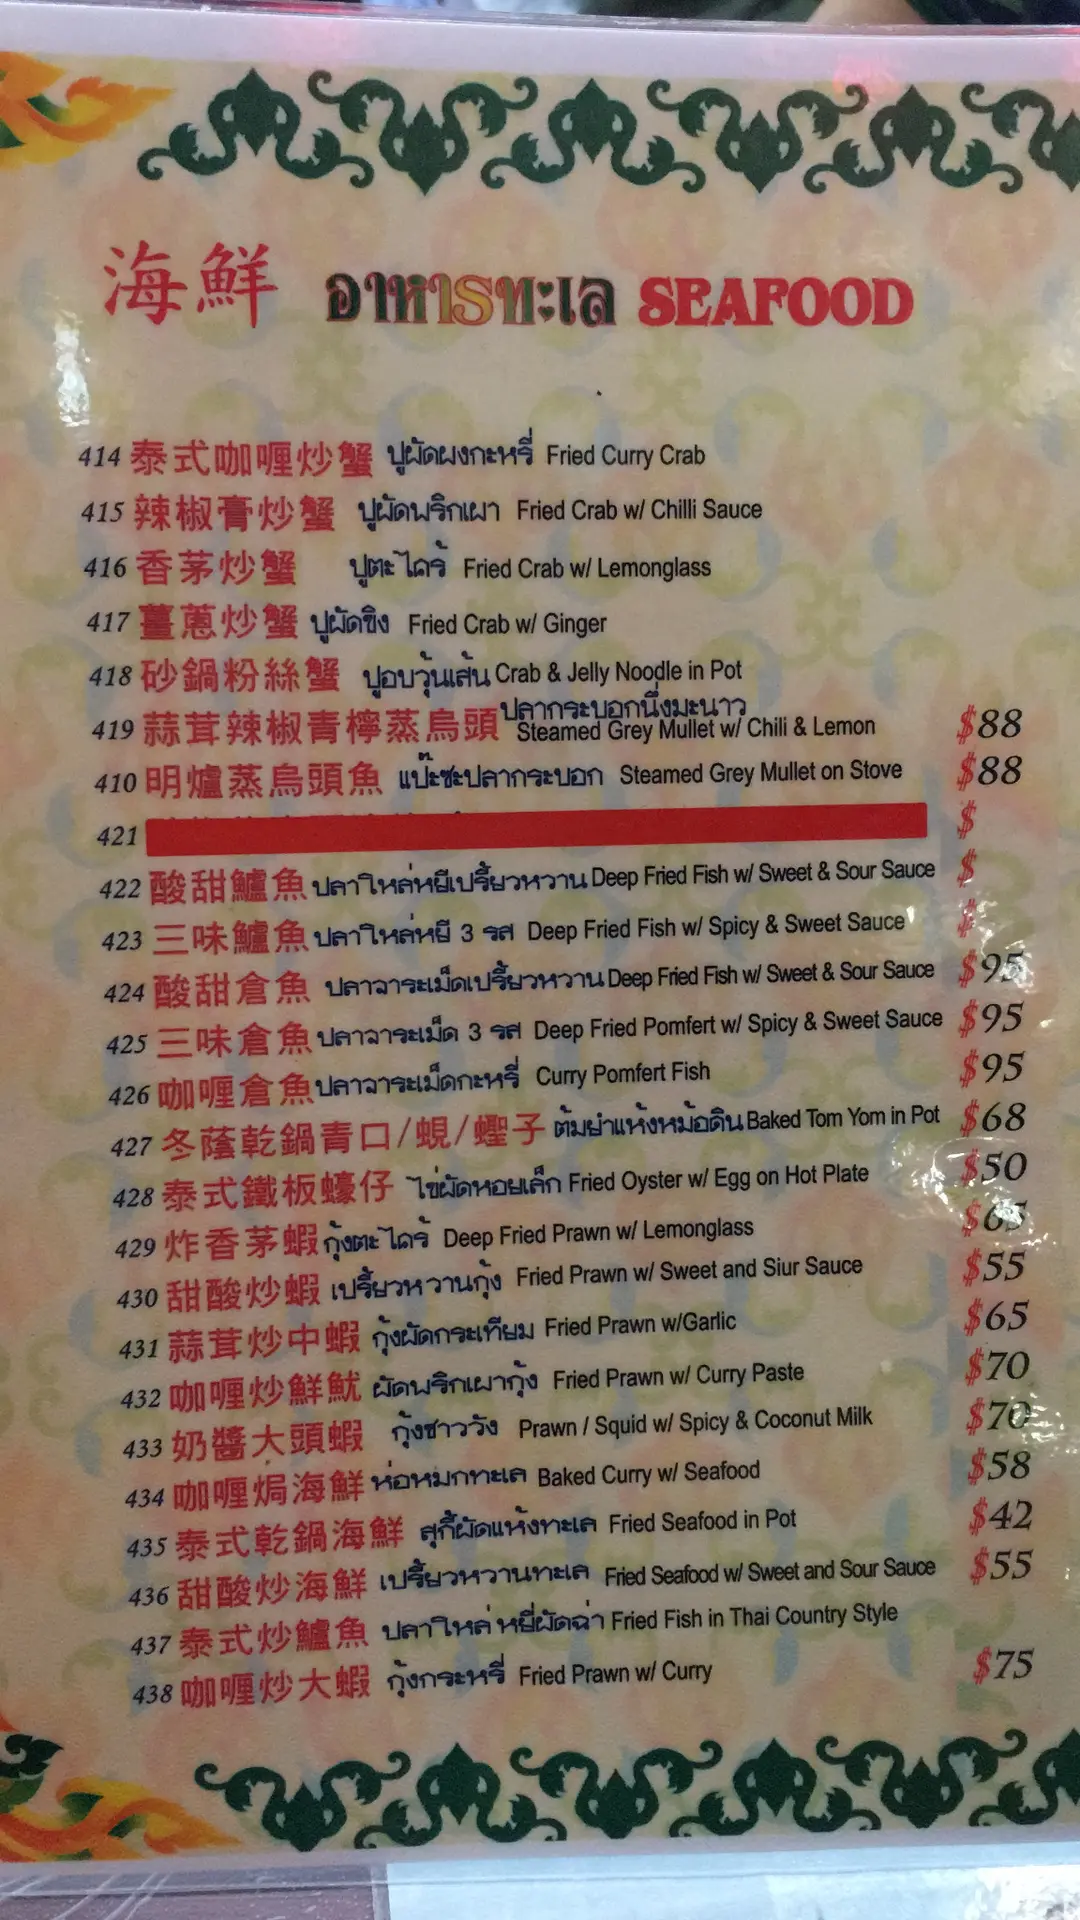 海鮮 อาหารทะเล SEAFOOD
414 泰式咖喱炒蟹 ปูผัดผงกะหรี่ Fried Curry Crab
415 辣椒膏炒蟹 ปูผัดพริกเผา Fried Crab w/ Chilli Sauce
416 香茅炒蟹 ปูตะไคร้ Fried Crab w/ Lemonglass
417 薑蔥炒蟹 ปูผัดขิง Fried Crab w/ Ginger
418 砂鍋粉絲蟹 ปูอบวุ้นเส้น Crab & Jelly Noodle in Pot
419 蒜茸辣椒青檸蒸烏頭 ปลากระบอกนึ่งมะนาว Steamed Grey Mullet w/ Chili & Lemon $88
410 明爐蒸烏頭魚 แป๊ะซะปลากระบอก Steamed Grey Mullet on Stove $88
421 $
422 酸甜鱸魚 ปลาใหล่หยีเปรี้ยวหวาน Deep Fried Fish w/ Sweet & Sour Sauce $
423 三味鱸魚 ปลาใหล่หยี 3 รส Deep Fried Fish w/ Spicy & Sweet Sauce $
424 酸甜倉魚 ปลาจาระเม็ดเปรี้ยวหวาน Deep Fried Fish w/ Sweet & Sour Sauce $95
425 三味倉魚 ปลาจาระเม็ด 3 รส Deep Fried Pomfert w/ Spicy & Sweet Sauce $95
426 咖喱倉魚 ปลาจาระเม็ดกะหรี่ Curry Pomfert Fish $95
427 冬蔭乾鍋青口/蜆/蟶子 ต้มยำแห้งหม้อดิน Baked Tom Yom in Pot $68
428 泰式鐵板蠔仔 ไข่ผัดหอยเล็ก Fried Oyster w/ Egg on Hot Plate $50
429 炸香茅蝦 กุ้งตะไคร้ Deep Fried Prawn w/ Lemonglass $65
430 甜酸炒蝦 เปรี้ยวหวานกุ้ง Fried Prawn w/ Sweet and Siur Sauce $55
431 蒜茸炒中蝦 กุ้งผัดกระเทียม Fried Prawn w/Garlic $65
432 咖喱炒鮮魷 ผัดพริกเผากุ้ง Fried Prawn w/ Curry Paste $70
433 奶醬大頭蝦 กุ้งชาววัง Prawn / Squid w/ Spicy & Coconut Milk $70
434 咖喱焗海鮮 ห่อหมกทะเล Baked Curry w/ Seafood $58
435 泰式乾鍋海鮮 สุกี้ผัดแห้งทะเล Fried Seafood in Pot $42
436 甜酸炒海鮮 เปรี้ยวหวานทะเล Fried Seafood w/ Sweet and Sour Sauce $55
437 泰式炒鱸魚 ปลาใหล่หยี่ผัดฉ่า Fried Fish in Thai Country Style
438 咖喱炒大蝦 กุ้งกระหรี่ Fried Prawn w/ Curry $75